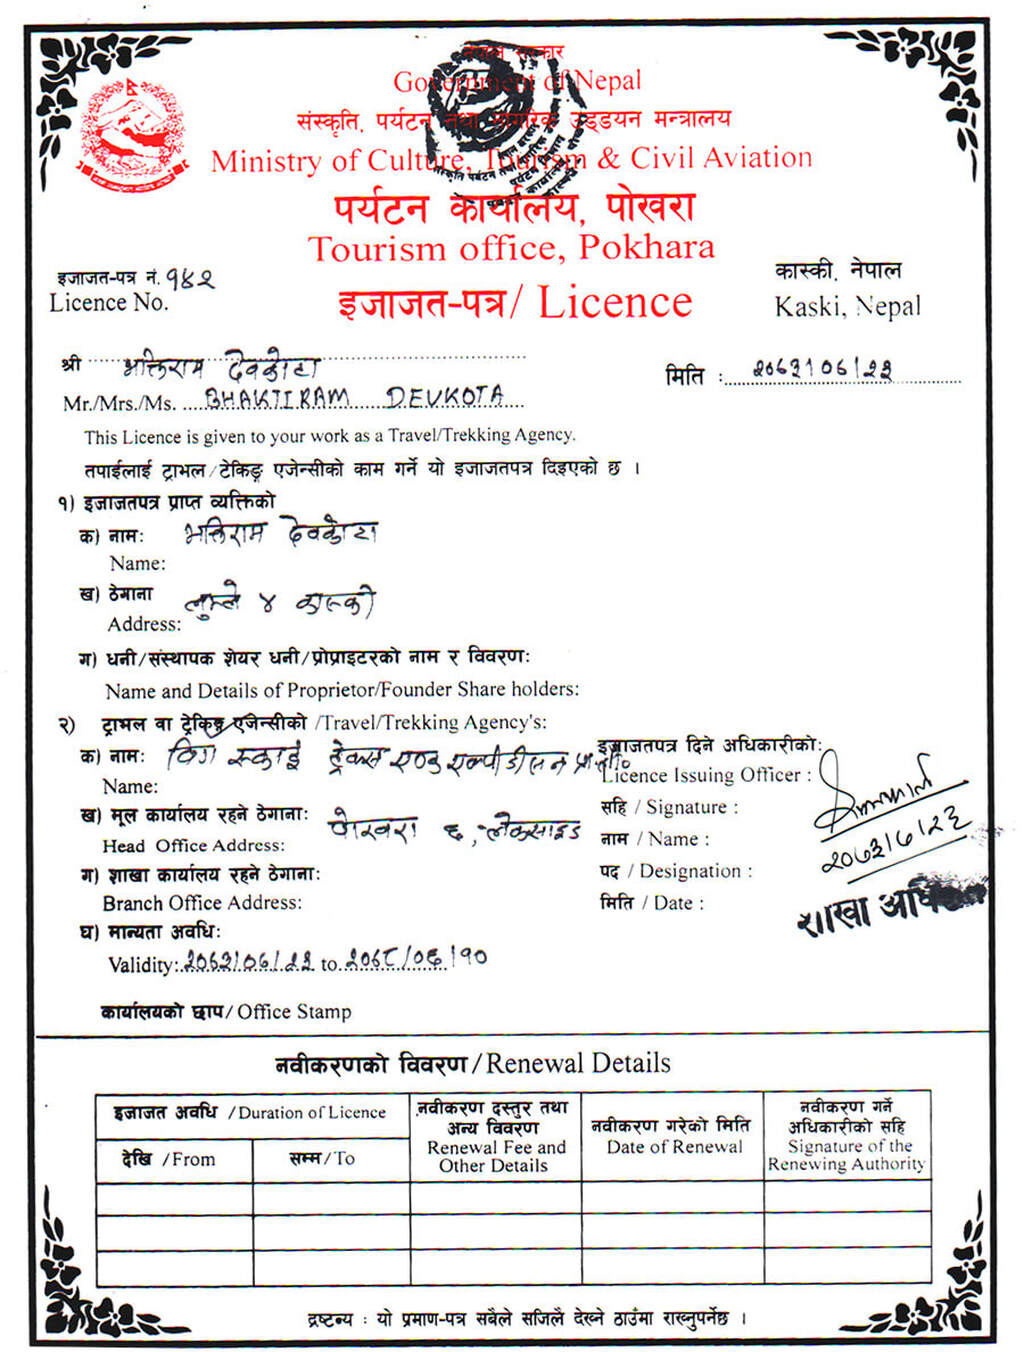 नेपाल सरकार
Government of Nepal
संस्कृति, पर्यटन तथा नागरिक उड्डयन मन्त्रालय
Ministry of Culture, Tourism & Civil Aviation
पर्यटन कार्यालय, पोखरा
Tourism office, Pokhara
इजाजत-पत्र नं. १४२
Licence No.
इजाजत-पत्र/ Licence
कास्की, नेपाल
Kaski, Nepal
श्री भक्तिराम देवकोटा
मिति :
Mr./Mrs./Ms. BHAKTIRAM DEVKOTA
This Licence is given to your work as a Travel/Trekking Agency.
तपाईलाई ट्राभल/टेकिङ्ग एजेन्सीको काम गर्ने यो इजाजतपत्र दिइएको छ ।
१) इजाजतपत्र प्राप्त व्यक्तिको
क) नामः भक्तिराम देवकोटा
Name:
ख) ठेगाना लुम्ले ४ कास्की
Address:
ग) धनी/संस्थापक शेयर धनी/प्रोप्राइटरको नाम र विवरणः
Name and Details of Proprietor/Founder Share holders:
२) ट्राभल वा ट्रेकिङ्ग एजेन्सीको /Travel/Trekking Agency's:
क) नामः विग स्काई ट्रेक्स एण्ड एक्स्पीडीसन प्रा.लि०
Name:
ख) मूल कार्यालय रहने ठेगानाः पोखरा ६, लेकसाइड
Head Office Address:
ग) शाखा कार्यालय रहने ठेगानाः
Branch Office Address:
घ) मान्यता अवधिः
Validity: to
इजाजतपत्र दिने अधिकारीकोः
Licence Issuing Officer :
सहि / Signature :
नाम / Name :
पद / Designation :
मिति / Date :
शाखा
कार्यालयको छाप/ Office Stamp
नवीकरणको विवरण/Renewal Details
इजाजत अवधि /Duration of Licence
देखि /From
सम्म/To
नवीकरण दस्तुर तथा
अन्य विवरण
Renewal Fee and
Other Details
नवीकरण गरेको मिति
Date of Renewal
नवीकरण गर्ने
अधिकारीको सहि
Signature of the
Renewing Authority
द्रष्टव्य : यो प्रमाण-पत्र सबैले सजिलै देख्ने ठाउँमा राख्नुपर्नेछ ।